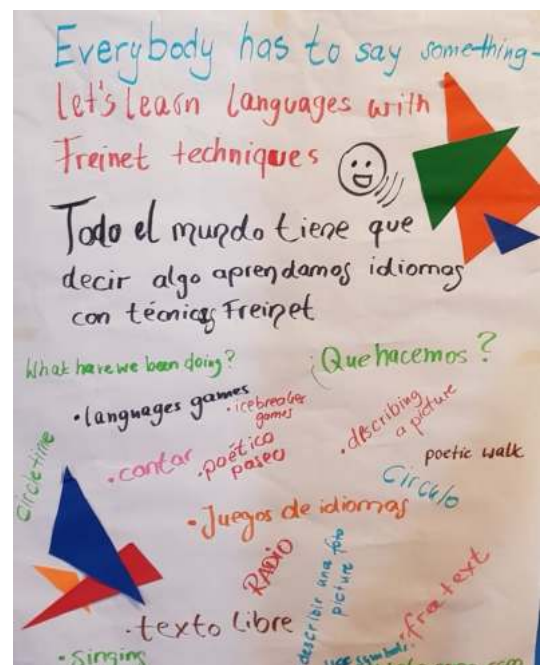 Everybody has to say something-
let's learn languages with
Freinet techniques
Todo el mundo tiene que
decir algo aprendamos idiomas
con técnicas Freinet
What have we been doing?
¿Que hacemos?
•languages games
•icebreaker
games
•describing
a picture
Circle time
•contar
•poético
paseo
poetic walk
Circulo
•Juegos de idiomas
RADIO
describir una foto
picture
•texto libre
•singing